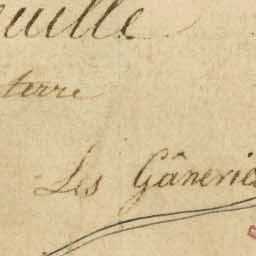 uille
terre
Les Gânerie